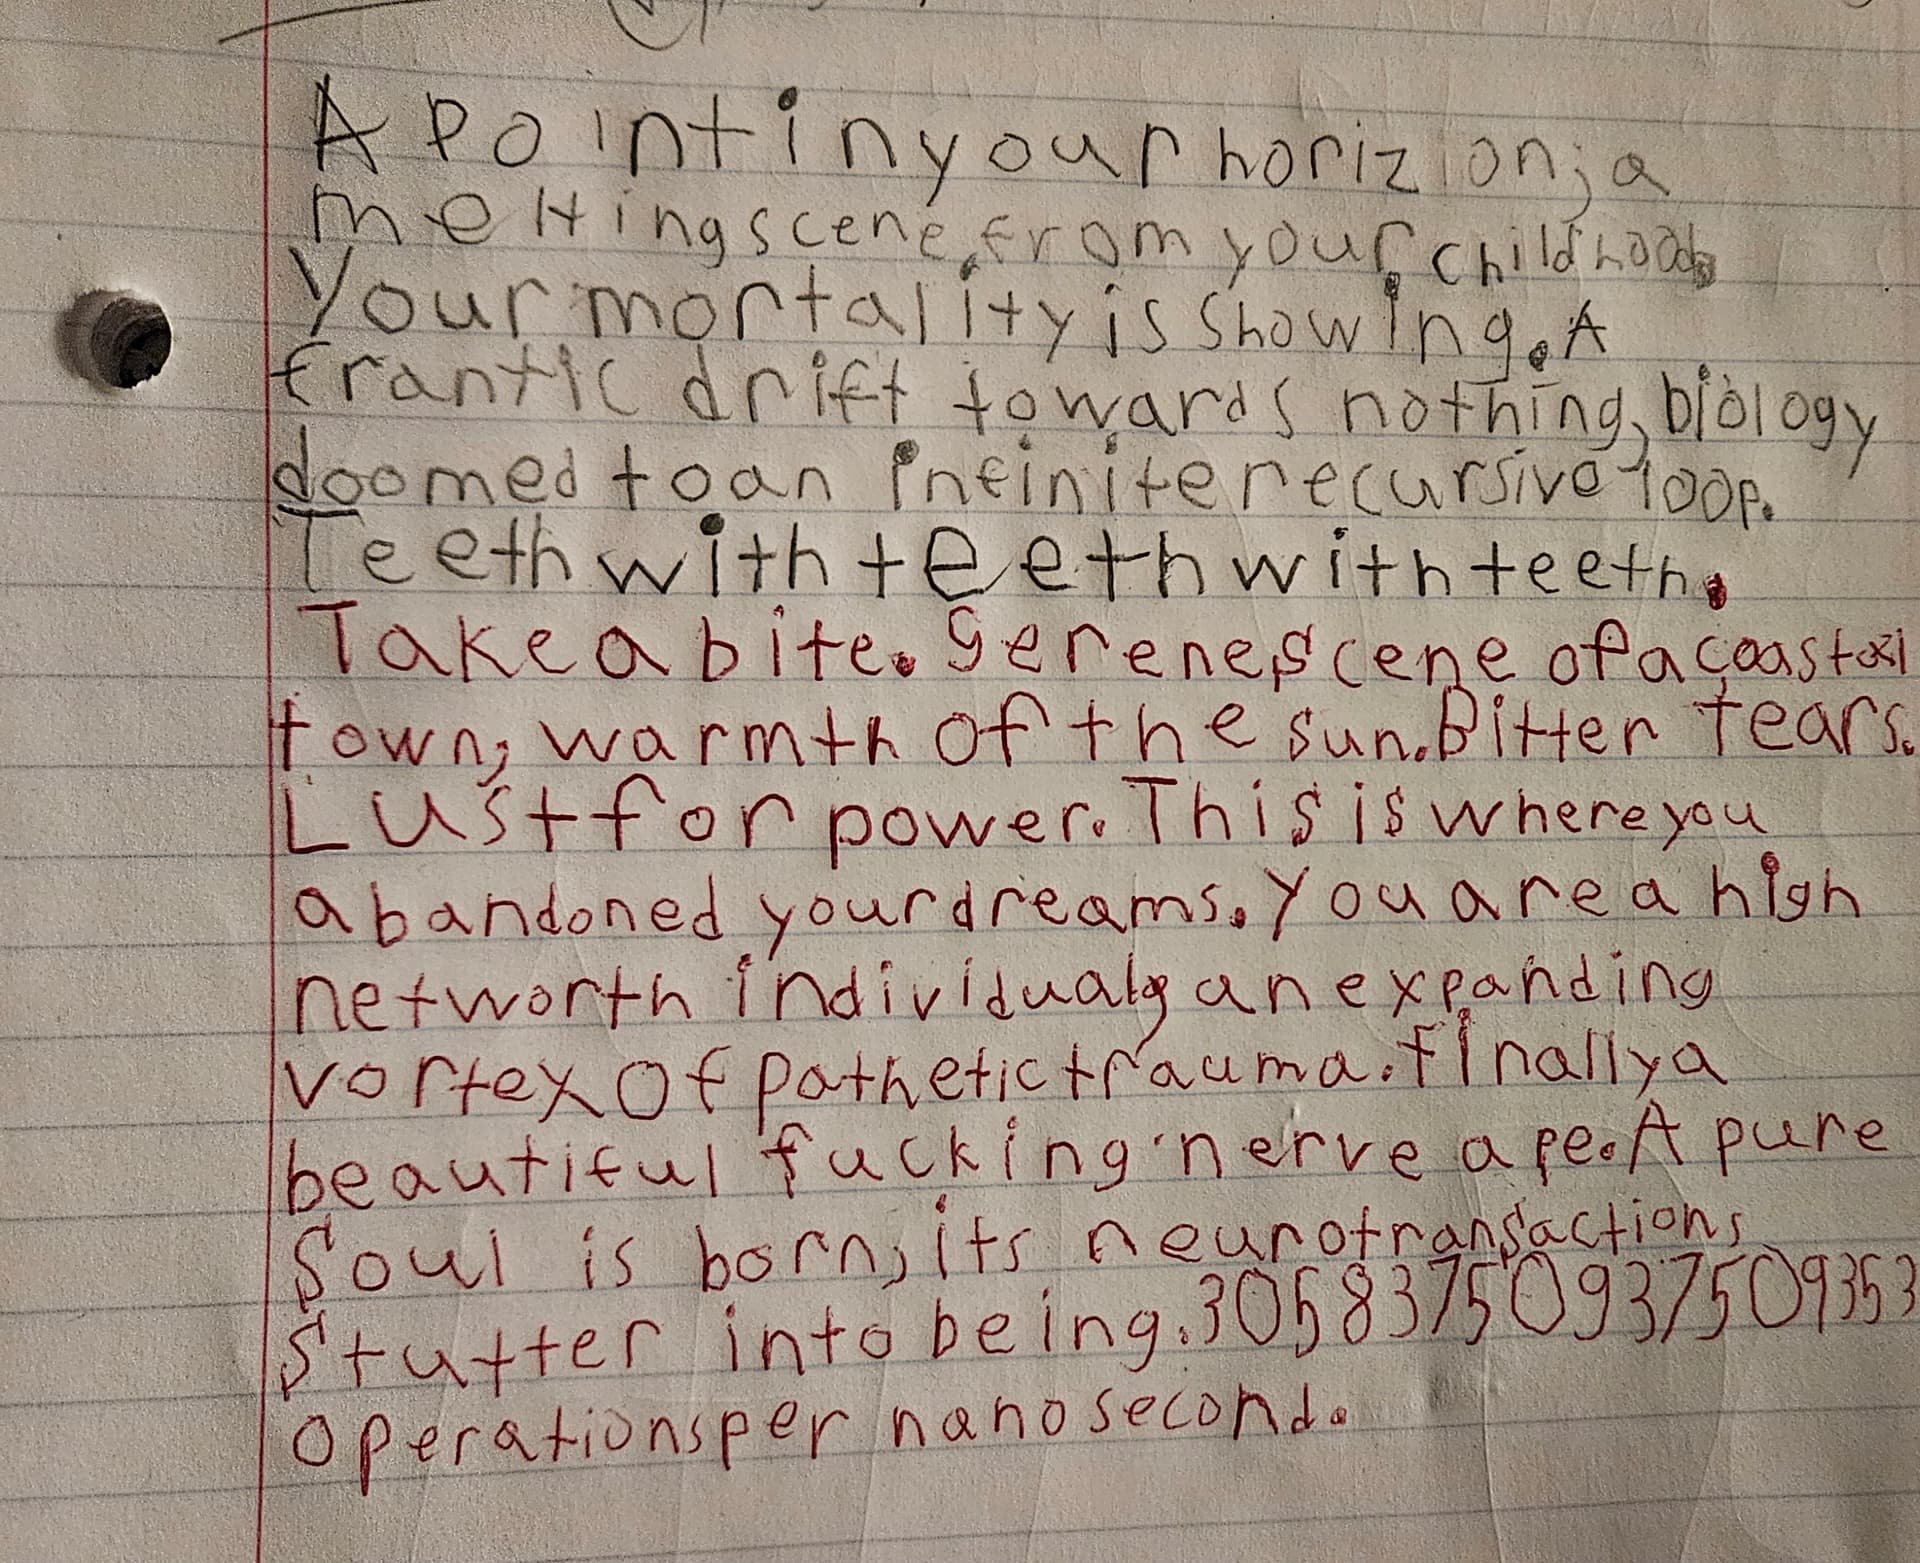 A point in your horizion; a
melting scene from your childhood.
Your mortality is showing. A
frantic drift towards nothing, biology
doomed to an infinite recursive loop.
Teeth with teeth with teeth.
Take a bite. Serene scene of a coastal
town, warmth of the sun. Bitter tears.
Lust for power. This is where you
abandoned your dreams. You are a high
networth individual, an expanding
vortex of pathetic trauma. Finally a
beautiful fucking nerve ape. A pure
Soul is born, its neurotransactions
Stutter into being. 30583750937509353
operations per nanosecond.